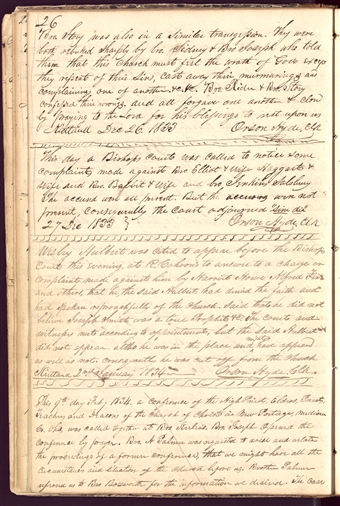 26
Bro. Story was also in a similar transgression. They were
both rebuked sharply by bro. Sidney & Bro Joseph who told
them that this Church must feel the wrath of God except
they repent of their Sins, cast away their murmurings and
complainings one of another &c &c. Bro. Rider & Bro. Story
confessed their wrongs and all forgave one another & closed
by praying to the Lord for his blessings to rest upon us
Kirtland Dec 26. 1833 Orson Hyde, Clk
This day a Bishops Court was called to notice some
complaints made against Bro Elliott & wife Haggart &
wife and Bro Babbit & wife and bro Jenkins Salsbury
The accused were all present. But the accusers were not
present, consequently the Court adjourned sine die
27 Dec 1833 Orson Hyde, Clk
Wesley Hulbert was cited to appear before the Bishops
Court this evening at to answer to a charge or
complaint made against him by Harriet Howe Alfred
and others that he the said Hulbert had denied the faith and
had spoken reproachfully of the church. Said that he did not
believe Joseph Smith was a true Prophet &c. The Court and
witnesses met according to appointment, but the said Hulbert
did not appear altho he was in the place and might have appeared
as well as not: consequently he was cut off from the church
Kirtland 2nd January 1834 Orson Hyde, Clk
This 9th day Feby 1834. a Conference of the High Priests Elders, Priests,
Teachers and Deacons of the Church of Christ in New Portage Medina
Co. Ohio, was called together at Bro Kirlins. Bro Joseph Opened the
conference by prayer. Bro A Palmer was requested to arise and relate
the proceedings of a former conference, that we might have all the
and situation of the church before us. Brother Palmer
referred us to Bro Bosworth for the information we desired. The case